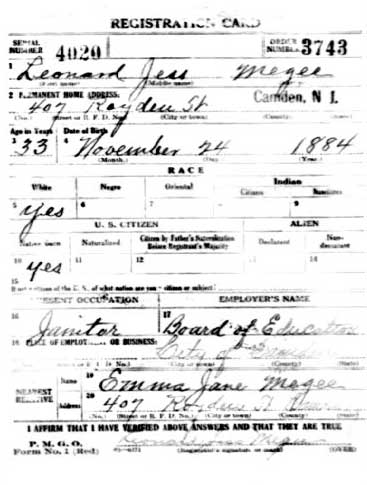 REGISTRATION CARD
SERIAL NUMBER 4020 ORDER NUMBER 3743
1 Leonard Jess Megee
(First name) (Middle name)
2 PERMANENT HOME ADDRESS:
407 Royden St Camden, N J.
(No.) (Street or R. F. D. No.) (City or town) (County) (State)
Age in Years Date of Birth
3 33 4 November 24 1884
(Month.) (Day.) (Year.)
RACE
White Negro Oriental Indian
Citizen Noncitizen
5 Yes 6 7 8 9
U. S. CITIZEN ALIEN
Native Born Naturalized Citizen by Father's Naturalization Before Registrant's Majority Declarant Non-declarant
10 yes 11 12 13 14
15
If not a citizen of the U. S., of what nation are you a citizen or subject?
PRESENT OCCUPATION EMPLOYER'S NAME
16 Janitor 17 Board of Education
18 PLACE OF EMPLOYMENT OR BUSINESS:
City of Camden
(City or town) (County) (State)
NEAREST RELATIVE
Name 19 Emma Jane Megee
Address 20 407 Royden St
(No.) (Street or R. F. D. No.) (City or town) (County) (State)
I AFFIRM THAT I HAVE VERIFIED ABOVE ANSWERS AND THAT THEY ARE TRUE
P. M. G. O.
Form No. 1 (Red) Leonard Jess Megee
(Registrant's signature or mark) (OVER)